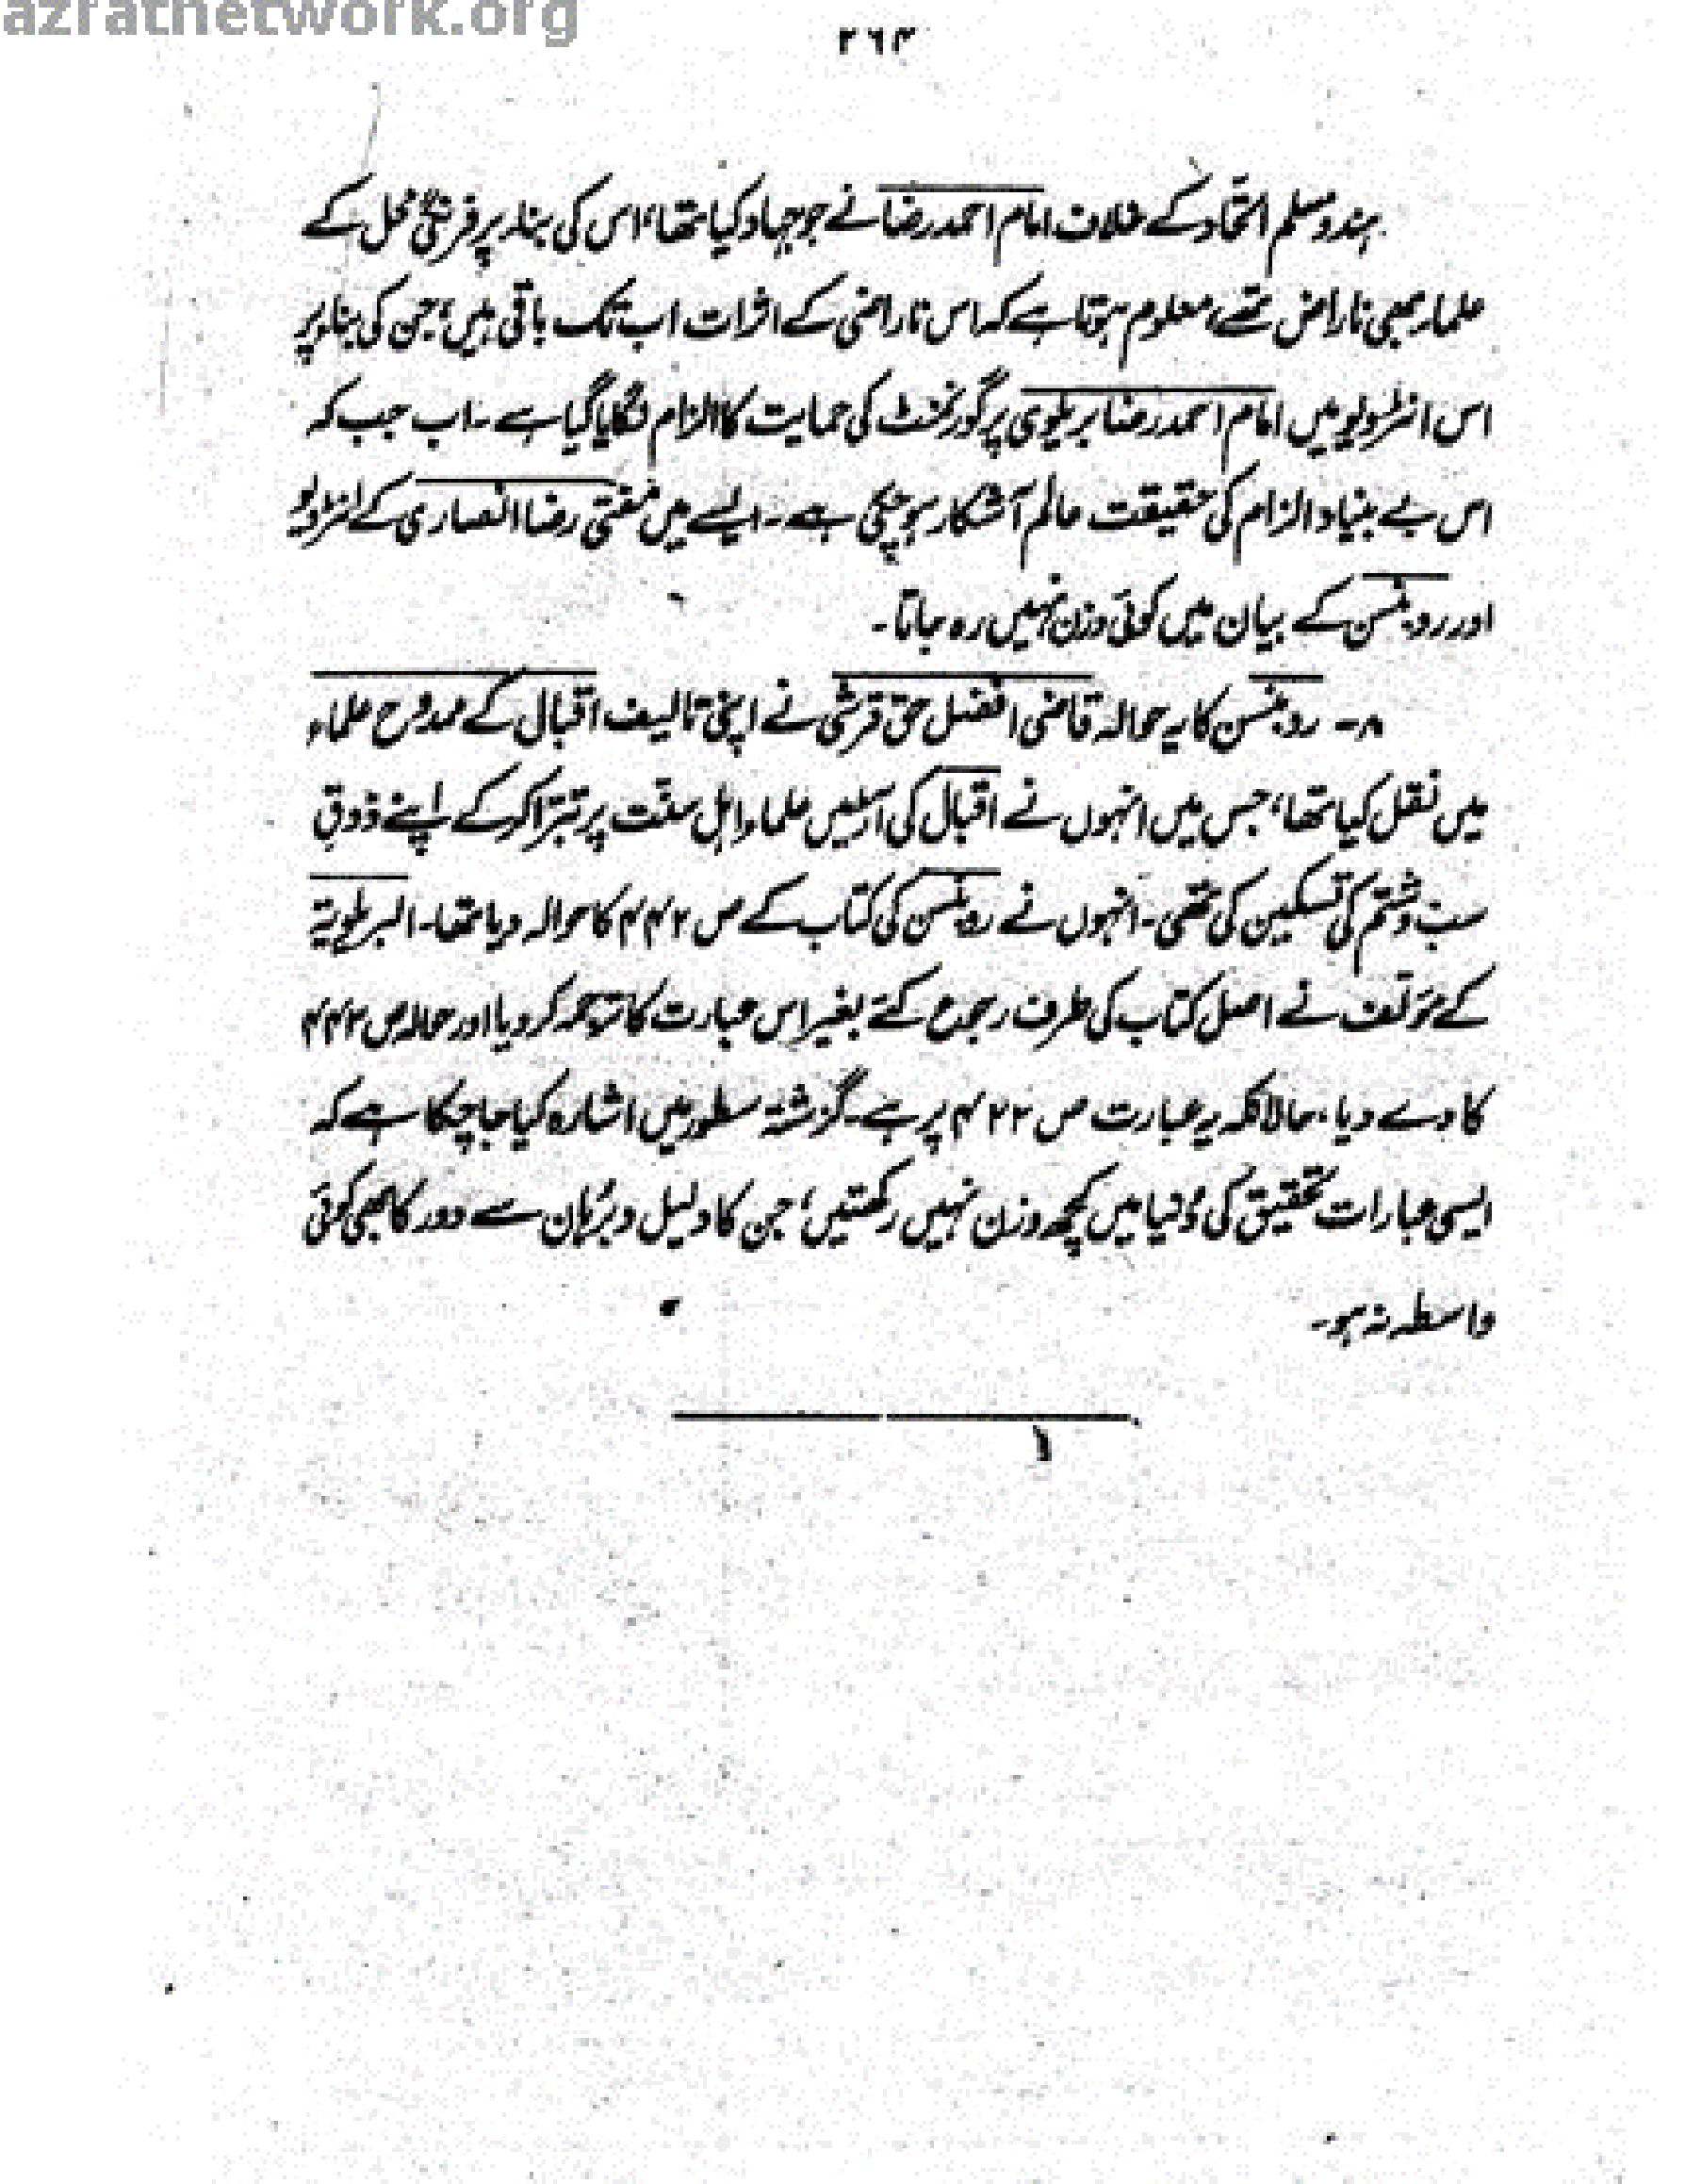 azratnetwork.org
۲۶۴
ہندو مسلم اتحاد کے خلاف امام احمد رضا نے جو جہاد کیا تھا، اس کی بناء پر فرنگی محل کے
علماء بھی ناراض تھے، معلوم ہوتا ہے کہ اس ناراضی کے اثرات اب تک باقی ہیں، جن کی بناء پر
اس انٹرویو میں امام احمد رضا بریلوی پر گورنمنٹ کی حمایت کا الزام لگایا گیا ہے ۔ اب جب کہ
اس بے بنیاد الزام کی حقیقت عالم آشکار ہو چکی ہے ۔ ایسے میں مفتی رضا انصاری کے انٹرویو
اور روبنسن کے بیان میں کوئی وزن نہیں رہ جاتا ۔
۸ ۔ روبنسن کا یہ حوالہ قاضی افضل حق قرشی نے اپنی تالیف اقبال کے ممدوح علماء
میں نقل کیا تھا، جس میں انہوں نے اقبال کی آڑ میں علماء اہل سنّت پر تبرّا کر کے اپنے ذوقِ
سبّ و شتم کی تسکین کی تھی ۔ انہوں نے روبنسن کی کتاب کے ص ۴۴۲ کا حوالہ دیا تھا ۔ البریلویۃ
کے مؤلف نے اصل کتاب کی طرف رجوع کئے بغیر اس عبارت کا ترجمہ کر دیا اور حوالہ ص ۴۴۲
کا دے دیا، حالانکہ یہ عبارت ص ۴۲۲ پر ہے ۔ گزشتہ سطور میں اشارہ کیا جا چکا ہے کہ
ایسی عبارات تحقیق کی دُنیا میں کچھ وزن نہیں رکھتیں، جن کا دلیل و بُرہان سے دور کا بھی کوئی
واسطہ نہ ہو ۔